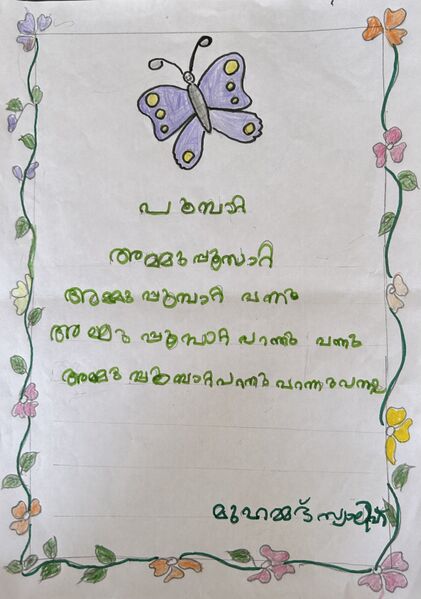 പൂമ്പാറ്റ
അമ്മു പൂമ്പാറ്റ
അമ്മു പൂമ്പാറ്റ വന്നു
അമ്മു പൂമ്പാറ്റ പറന്നു വന്നു
അമ്മു പൂമ്പാറ്റ പറന്നു പറന്നു വന്നു
മുഹമ്മദ് സ്വാലിഹ്